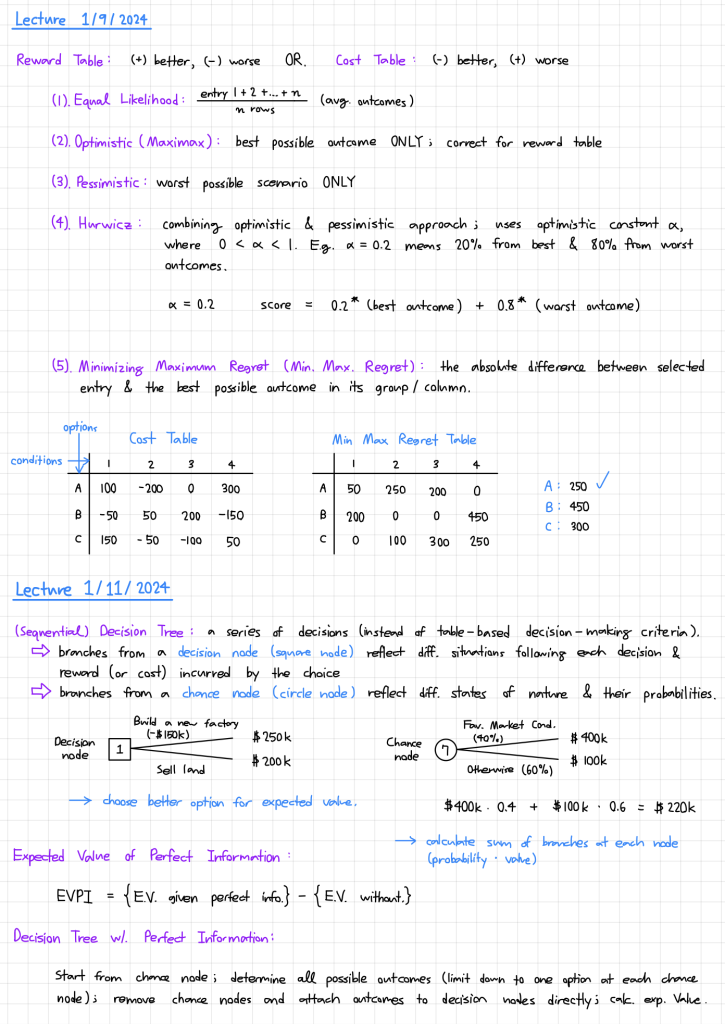 Lecture 1/9/2024
Reward Table: (+) better, (-) worse OR. Cost Table: (-) better, (+) worse
(1). Equal Likelihood: entry 1 + 2 + ... + n / n rows (avg. outcomes)
(2). Optimistic (Maximax): best possible outcome ONLY; correct for reward table
(3). Pessimistic: worst possible scenario ONLY
(4). Hurwicz: combining optimistic & pessimistic approach; uses optimistic constant α,
where 0 < α < 1. E.g. α = 0.2 means 20% from best & 80% from worst
outcomes.
α = 0.2 score = 0.2* (best outcome) + 0.8* (worst outcome)
(5). Minimizing Maximum Regret (Min. Max. Regret): the absolute difference between selected
entry & the best possible outcome in its group / column.
options
Cost Table Min Max Regret Table
conditions 1 2 3 4 1 2 3 4
A 100 -200 0 300 A 50 250 200 0 A: 250 ✓
B -50 50 200 -150 B 200 0 0 450 B: 450
C 150 -50 -100 50 C 0 100 300 250 C: 300
Lecture 1/11/2024
(Sequential) Decision Tree: a series of decisions (instead of table-based decision-making criteria).
⇨ branches from a decision node (square node) reflect diff. situations following each decision &
reward (or cost) incurred by the choice
⇨ branches from a chance node (circle node) reflect diff. states of nature & their probabilities.
Build a new factory Fav. Market Cond.
(-$150k) $250k (40%) $400k
Decision node 1 Chance node 7
Sell land $200k Otherwise (60%) $100k
→ choose better option for expected value. $400k · 0.4 + $100k · 0.6 = $220k
→ calculate sum of branches at each node
(probability · value)
Expected Value of Perfect Information:
EVPI = {E.V. given perfect info.} - {E.V. without.}
Decision Tree w/. Perfect Information:
Start from chance node; determine all possible outcomes (limit down to one option at each chance
node); remove chance nodes and attach outcomes to decision nodes directly; calc. exp. Value.